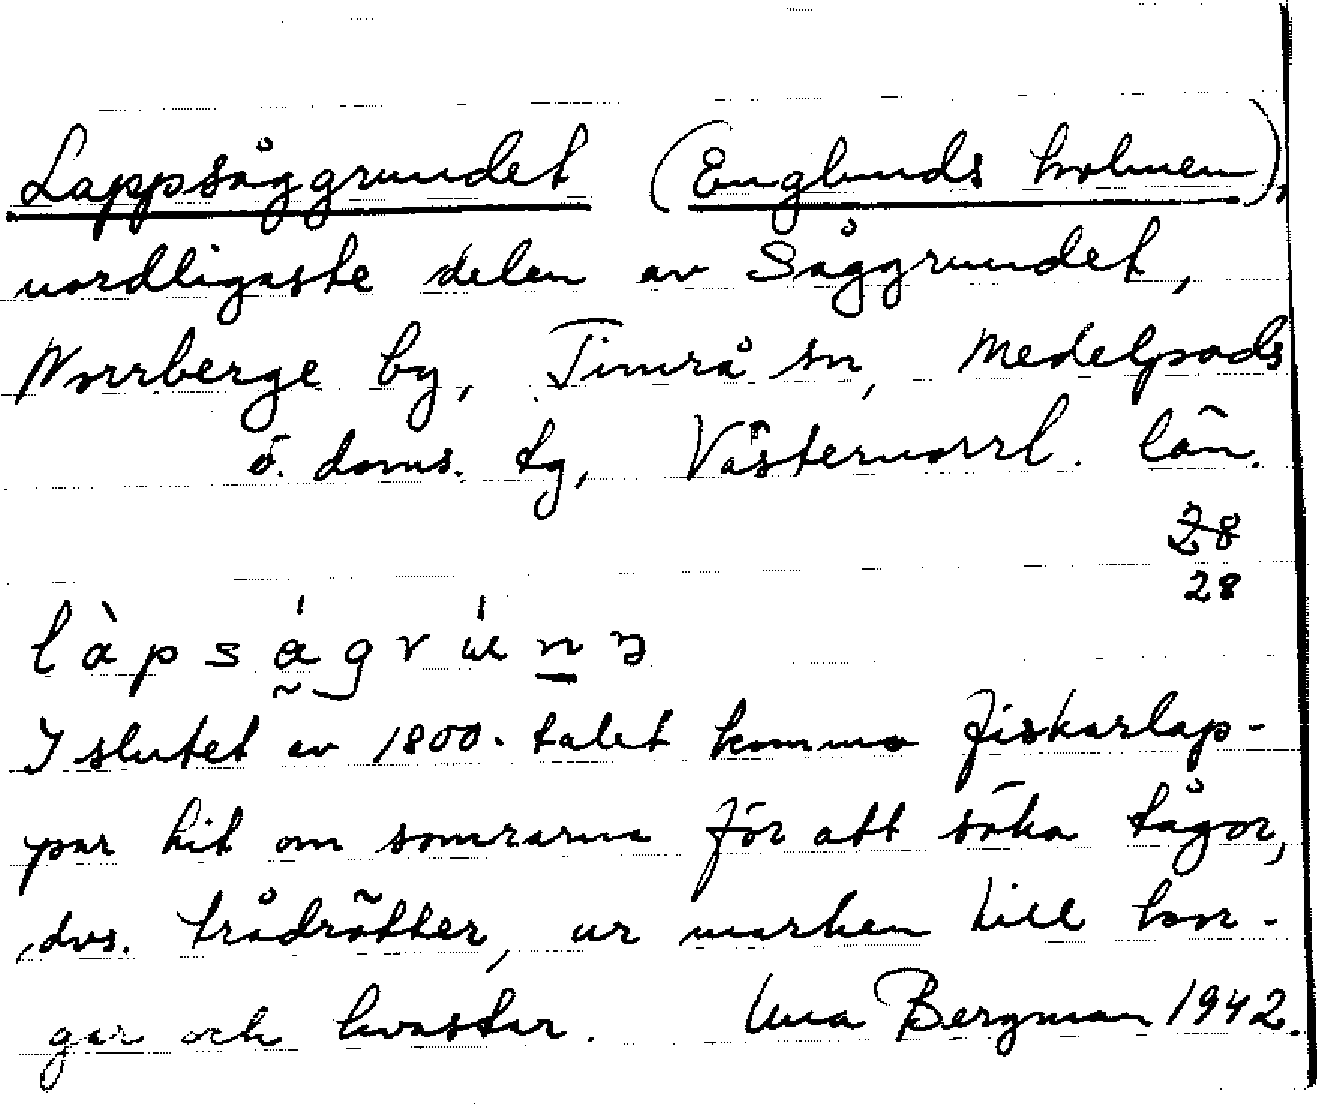 Lappsåggrundet (Englunds holmen),
nordligaste delen av Såggrundet,
Norrberge by, Timrå sn, Medelpads
ö. doms. tg, Västernorrl. län.
28
28
làpságrúnə
I slutet av 1800-talet kommo fiskarlap-
par hit om somrarna för att söka tågor,
dvs. trådrötter, ur marken till kor-
gar och kvastar. Una Bergman 1942.